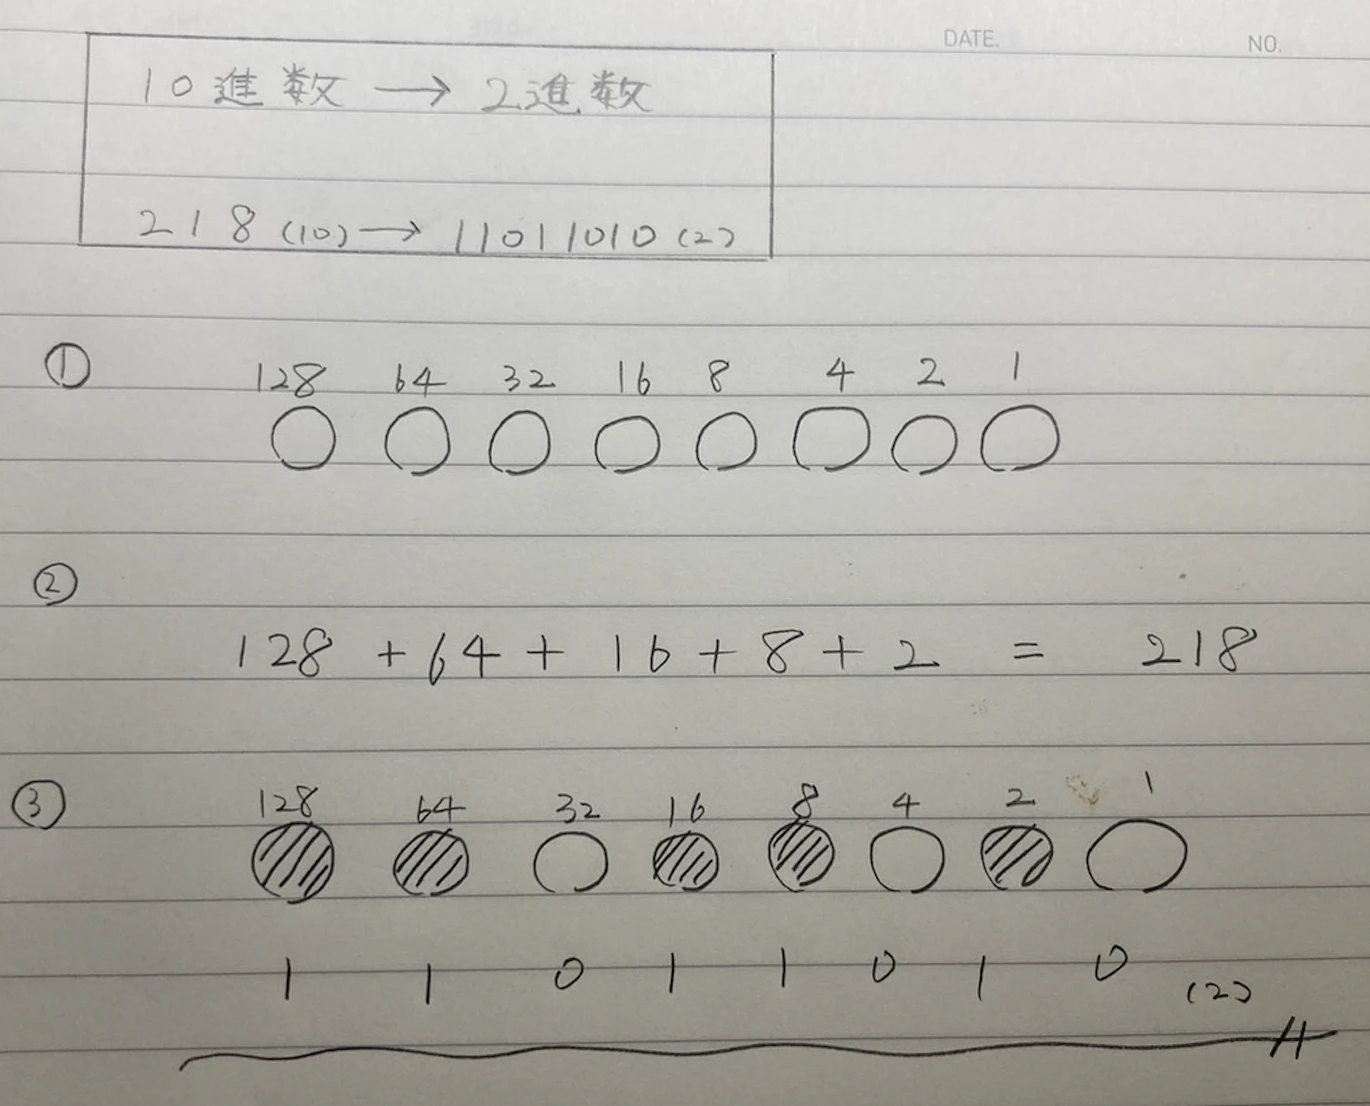 DATE. NO.
10進数 → 2進数
218(10) → 11011010(2)
① 128 64 32 16 8 4 2 1
②
128 + 64 + 16 + 8 + 2 = 218
③ 128 64 32 16 8 4 2 1
1 1 0 1 1 0 1 0 (2)